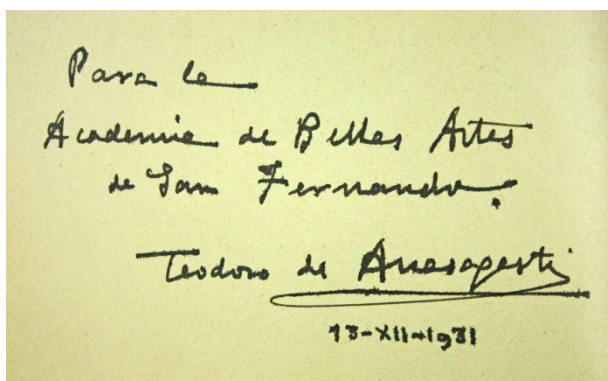 Para la
Academia de Bellas Artes
de San Fernando.
Teodoro de Anasagasti
13-XII-1931